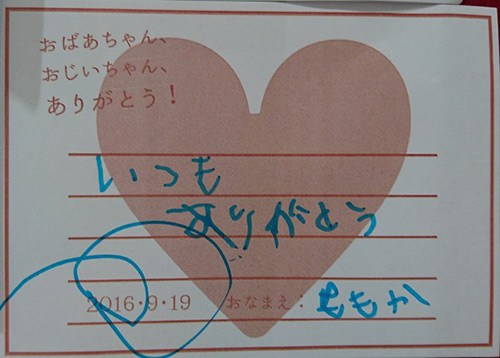 おばあちゃん、
おじいちゃん、
ありがとう!
いつも
ありがとう
2016・9・19 おなまえ:ももか